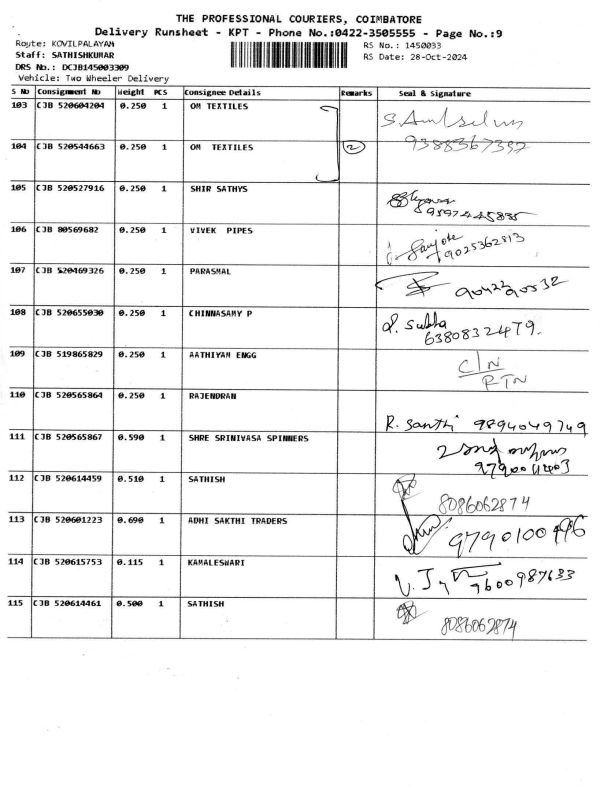 THE PROFESSIONAL COURIERS, COIMBATORE
Delivery Runsheet - KPT - Phone No.:0422-3505555 - Page No.:9
Route: KOVILPALAYAM
RS No.: 1450033
Staff: SATHISHKUMAR
RS Date: 28-Oct-2024
DRS No.: DCJB145003309
Vehicle: Two Wheeler Delivery
S No Consignment No Weight PCS Consignee Details Remarks Seal & Signature
103 CJB 520604204 0.250 1 OM TEXTILES
104 CJB 520544663 0.250 1 OM TEXTILES 2 9388367352
105 CJB 520527916 0.250 1 SHIR SATHYS
9597445835
106 CJB 80569682 0.250 1 VIVEK PIPES
9025362813
107 CJB 520469326 0.250 1 PARASMAL
9042290532
108 CJB 520655030 0.250 1 CHINNASAMY P
P. Subha
6380832479.
109 CJB 519865829 0.250 1 AATHIYAM ENGG
C/N
RTN
110 CJB 520565864 0.250 1 RAJENDRAN
R. Santhi 9894049749
111 CJB 520565867 0.590 1 SHRE SRINIVASA SPINNERS
112 CJB 520614459 0.510 1 SATHISH
8086062874
113 CJB 520601223 0.690 1 ADHI SAKTHI TRADERS
9790100496
114 CJB 520615753 0.115 1 KAMALESWARI
9600987633
115 CJB 520614461 0.500 1 SATHISH
8086062874